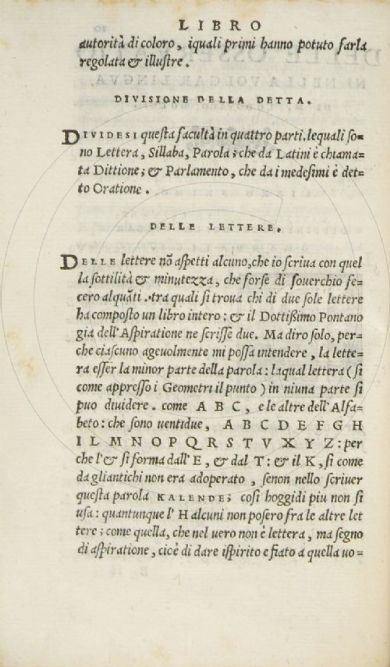 LIBRO
autorità di coloro, iquali primi hanno potuto farla
regolata & illustre.
DIVISIONE DELLA DETTA.
DIVIDESI questa facultà in quattro parti. lequali so-
no Lettera, Sillaba, Parola; che da Latini è chiama-
ta Dittione; & Parlamento, che da i medesimi è det-
to Oratione.
DELLE LETTERE.
DELLE lettere nõ aspetti alcuno, che io scriua con quel
la sottilità & minutezza, che forse di souerchio fe-
cero alquãti. tra quali si troua chi di due sole lettere
ha composto un libro intero: & il Dottißimo Pontano
gia dell'Aspiratione ne scrisse due. Ma diro solo, per-
che ciascuno ageuolmente mi possa intendere, la lette-
ra esser la minor parte della parola: laqual lettera (si
come appresso i Geometri il punto) in niuna parte si
puo diuidere. come A B C, e le altre dell'Alfa-
beto: che sono uentidue, A B C D E F G H
I L M N O P Q R S T V X Y Z: per
che l'& si forma dall'E, & dal T: & il K, si come
da gliantichi non era adoperato, senon nello scriuer
questa parola KALENDE; cosi hoggidi piu non si
usa: quantunque l'H alcuni non posero fra le altre let
tere; come quella, che nel uero non è lettera, ma segno
di aspiratione, cioè di dare ispirito e fiato a quella uo-